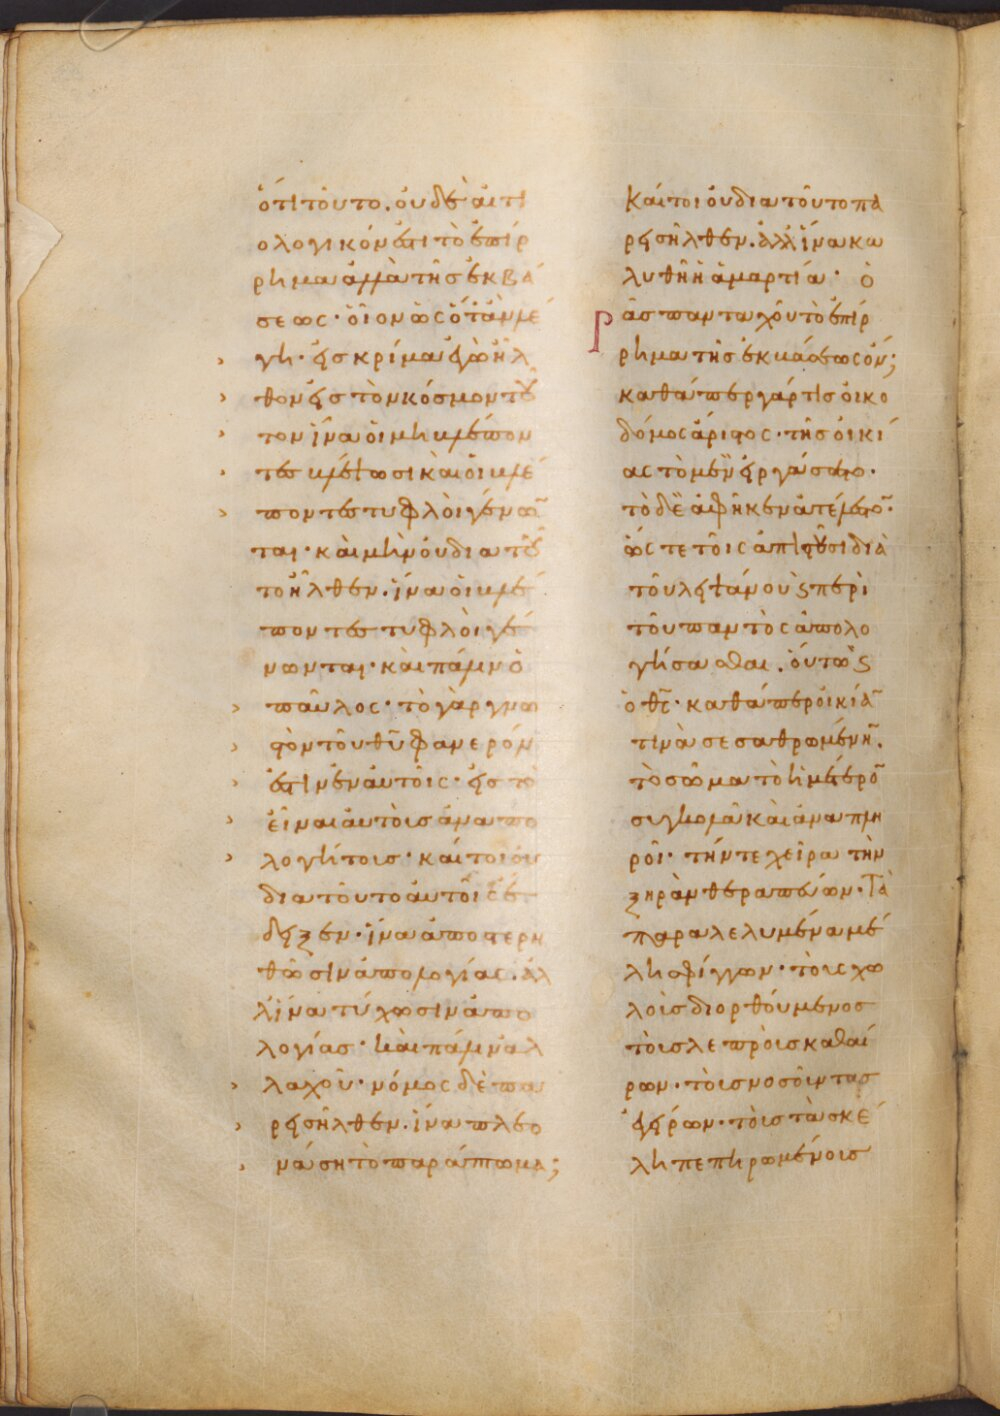 ὅτι τοῦτο. οὐδὲ αἰτι
ολογικόν ἐστι τὸ ἐπίρ
ρημα ἀλλὰ τῆς ἐκβά
σεως· οἷον ὡς ὅταν λέ
γη· εἰς κρίμα ἐγὼ ἦλ
θον εἰς τὸν κόσμον τοῦ
τον ἵνα οἱ μὴ βλέπον
τες βλέπωσι καὶ οἱ βλέ
ποντες τυφλοὶ γένων
ται· καὶ μὴν οὐ διατοῦ
το ἦλθεν. ἵνα οἱ βλέ
ποντες τυφλοὶ γέ
νωνται· καὶ πάλιν ὁ
παῦλος· τὸ γὰρ γνω
στὸν τοῦ θῦ φανερόν
ἐστιν ἐν αὐτοῖς· εἰς τὸ
εἶναι αὐτοὺς ἀναπο
λογήτους· καίτοι οὐ
διατοῦτο αὐτοῖς ἔ
δειξεν· ἵνα ἀποστερη
θῶσιν ἀπολογίας. ἀλ
λ' ἵνα τύχωσιν ἀπο
λογίας· καὶ πάλιν ἀλ
λαχοῦ· νόμος δὲ πα
ρεισῆλθεν. ἵνα πλεο
νάση τὸ παράπτωμα;
καίτοι οὐ διατοῦτο πα
ρεισῆλθεν. ἀλλ' ἵνα κω
λυθῆ ἡ ἁμαρτία· ὁ
ρᾶς πανταχοῦ τὸ ἐπίρ
ρημα τῆς ἐκβάσεως ὄν;
καθάπερ γάρ τις οἰκο
δόμος ἄριστος· τῆς οἰκί
ας τὸ μὲν εἰργάσατο·
τὸ δὲ ἀφῆκεν ἀτέλεστον·
ὥστε τοῖς ἀπιστοῦσι διὰ
τοῦ λειψάνου περὶ
τοῦ παντὸς ἀπολο
γήσασθαι. οὕτω
ὁ θς· καθάπερ οἰκίαν
τινὰ σεσαθρωμένην.
τὸ σῶμα τὸ ἡμέτερον
συγκολλᾶ καὶ ἀναπλη
ροῖ· τήν τε χεῖρα τὴν
ξηρὰν θεραπεύων· τὰ
παραλελυμένα μέ
λη σφίγγων· τοὺς χω
λοὺς διορθούμενος
τοὺς λεπροὺς καθαί
ρων· τοὺς νοσοῦντας
ἐγείρων· τοὺς τὰ σκέ
λη πεπηρωμένους